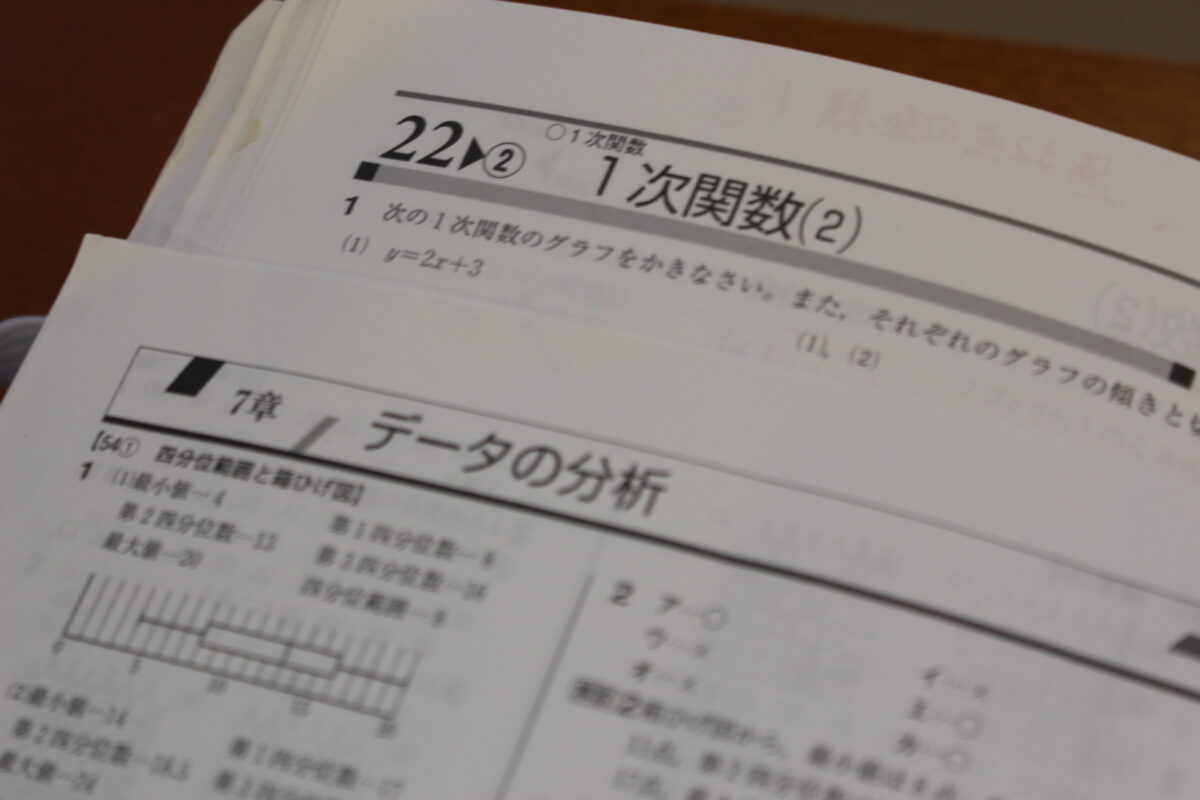 22▶② ○1次関数 1次関数(2)
1 次の1次関数のグラフをかきなさい。また，それぞれのグラフの傾きと切
(1) y=2x+3
(1)，(2)
7章 データの分析
【54① 四分位範囲と箱ひげ図】
1 (1)最小値…4 第1四分位数…8
第2四分位数…13 第3四分位数…16
最大値…20 四分位範囲…
0 5 10 15 20
(2)最小値…14 第1四分位数…17
第2四分位数…18.5 第3四分位数
最大値…24
2 ア…○ イ…×
ウ…× エ…○
オ…× カ…○
箱ひげ図から，最小値は